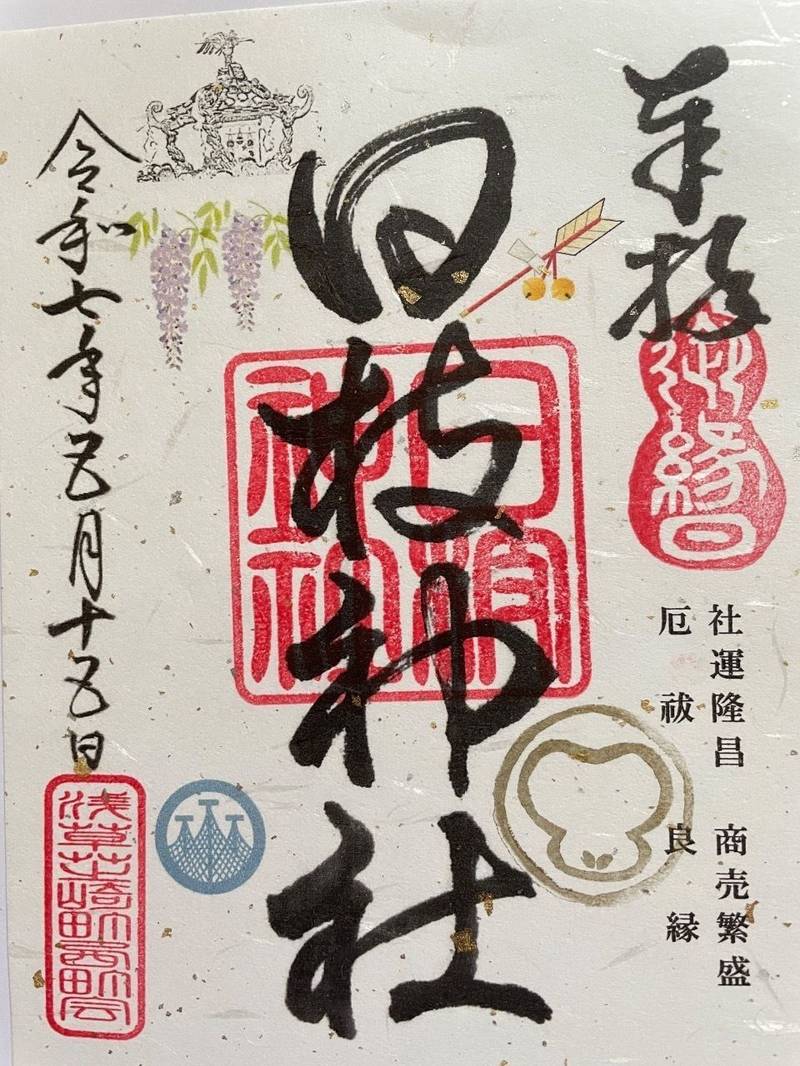 奉拝
御縁日
社運隆昌 商売繁盛
厄祓 良縁
日枝神社
日枝神社
令和七年五月十五日
浅草芝崎町西町会